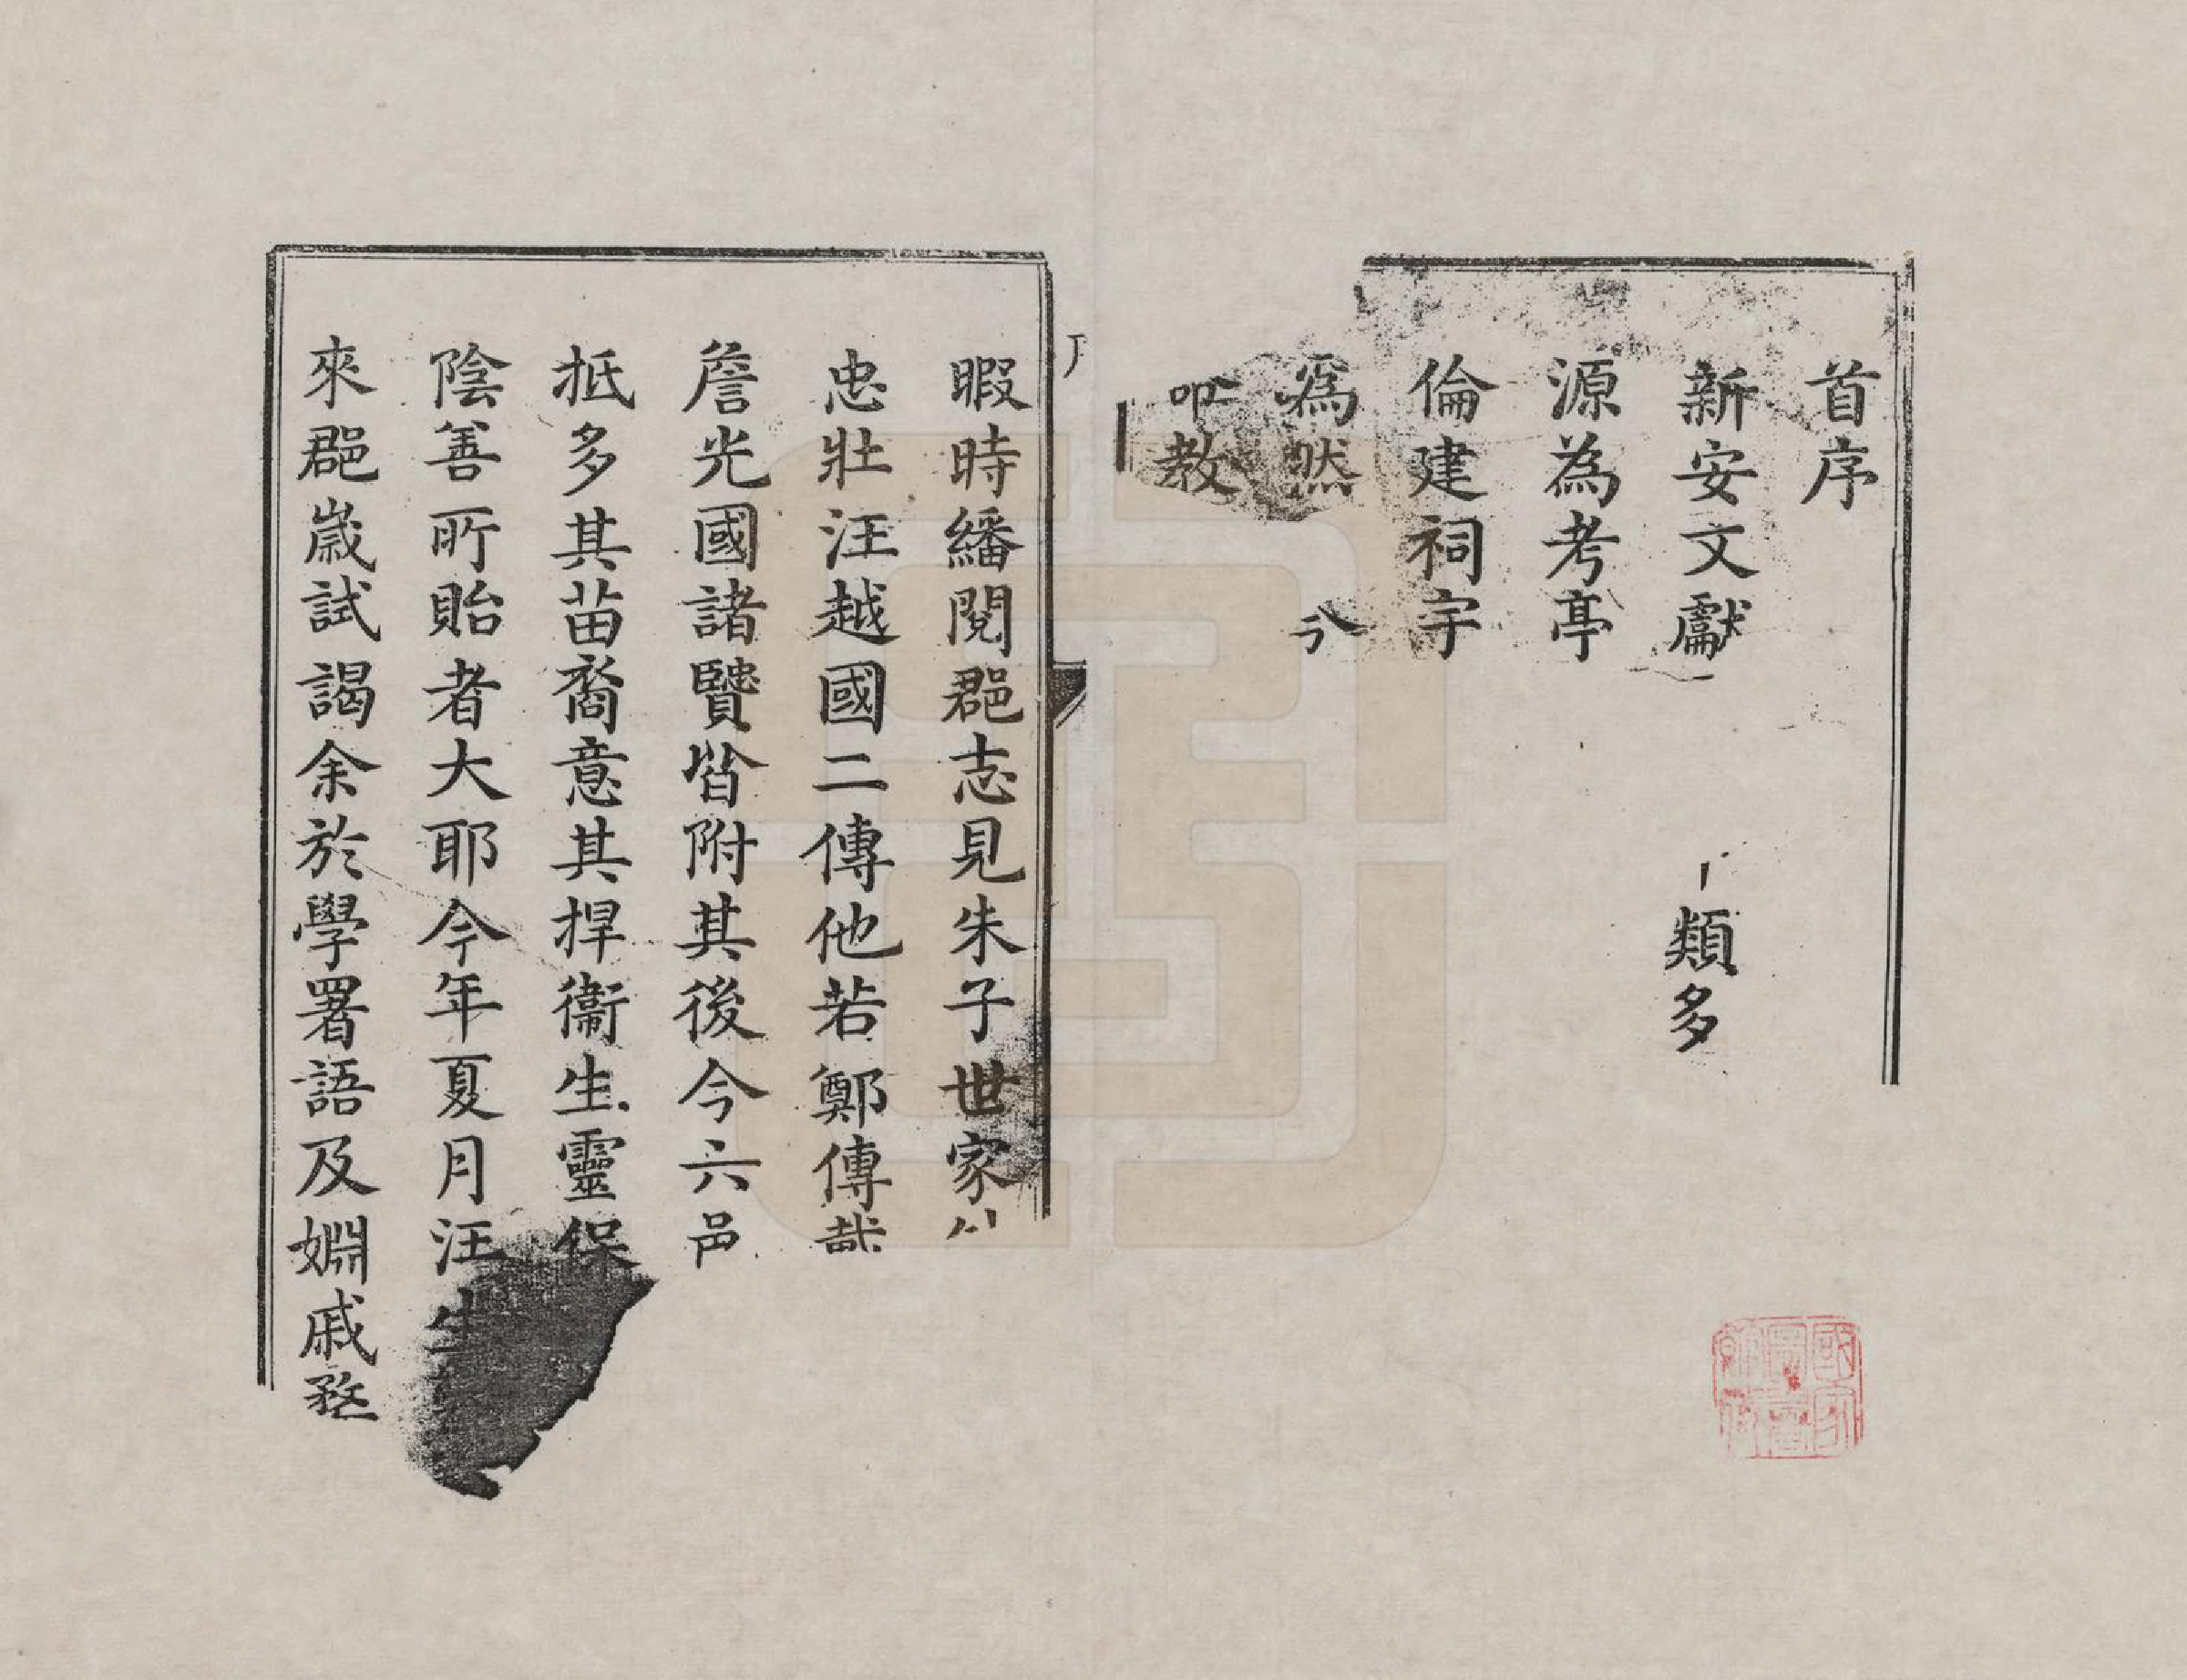 首序
新安文獻 類多
源為考亭
倫建祠宇
爲然
教
暇時繙閱郡志見朱子世家
忠壯汪越國二傳他若鄭傳
詹光國諸賢皆附其後今六邑
抵多其苗裔意其捍衞生靈保
陰善所貽者大耶今年夏月汪生
來郡嵗試謁余於學署語及婣戚